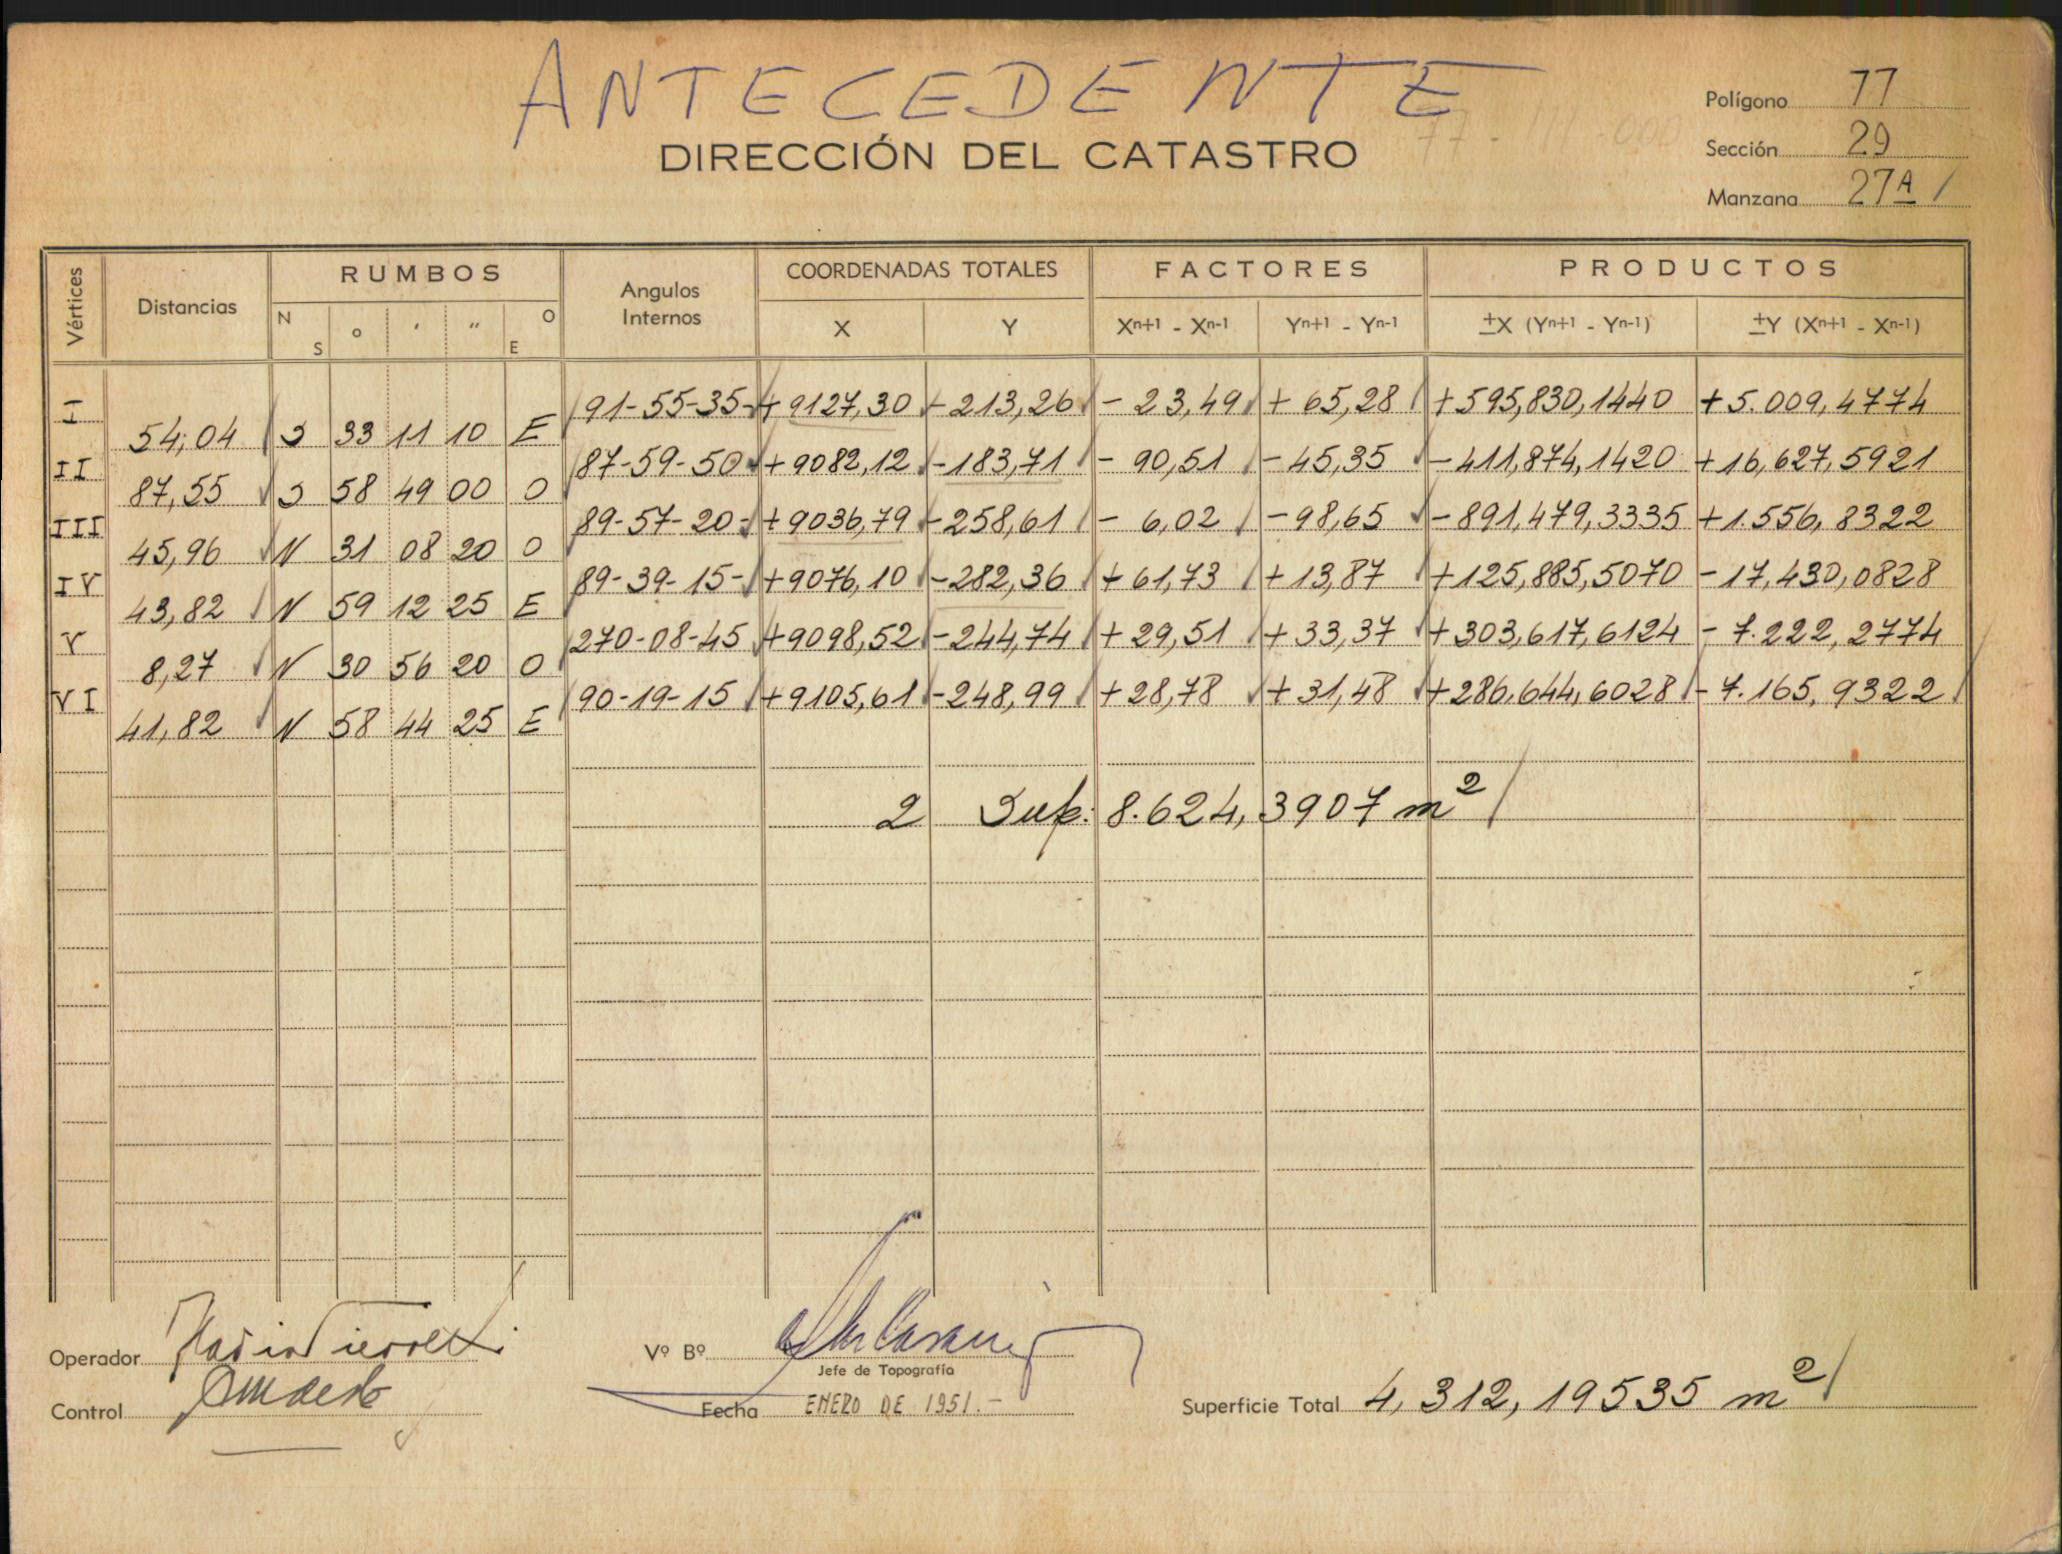 ANTECEDENTE
DIRECCIÓN DEL CATASTRO
Polígono 77
Sección 29
Manzana 27A /
Vértices Distancias RUMBOS Angulos Internos COORDENADAS TOTALES FACTORES PRODUCTOS
N S o ' " O E X Y Xn+1 - Xn-1 Yn+1 - Yn-1 ±X (Yn+1 - Yn-1) ±Y (Xn+1 - Xn-1)
I 91-55-35 +9127,30 -213,26 -23,49 +65,28 +595,830,1440 +5.009,4774
54,04 S 33 11 10 E
II 87-59-50 +9082,12 -183,71 -90,51 -45,35 -411,874,1420 +16,627,5921
87,55 S 58 49 00 O
III 89-57-20 +9036,79 -258,61 -6,02 -98,65 -891,479,3335 +1.556,8322
45,96 N 31 08 20 O
IV 89-39-15 +9076,10 -282,36 +61,73 +13,87 +125,885,5070 -17,430,0828
43,82 N 59 12 25 E
V 270-08-45 +9098,52 -244,74 +29,51 +33,37 +303,617,6124 -7.222,2774
8,27 N 30 56 20 O
VI 90-19-15 +9105,61 -248,99 +28,78 +31,48 +286,644,6028 -7.165,9322
41,82 N 58 44 25 E
2 Sup: 8.624,3907 m²
Operador
Control
Vº Bº
Jefe de Topografía
Fecha ENERO DE 1951.-
Superficie Total 4,312,19535 m²